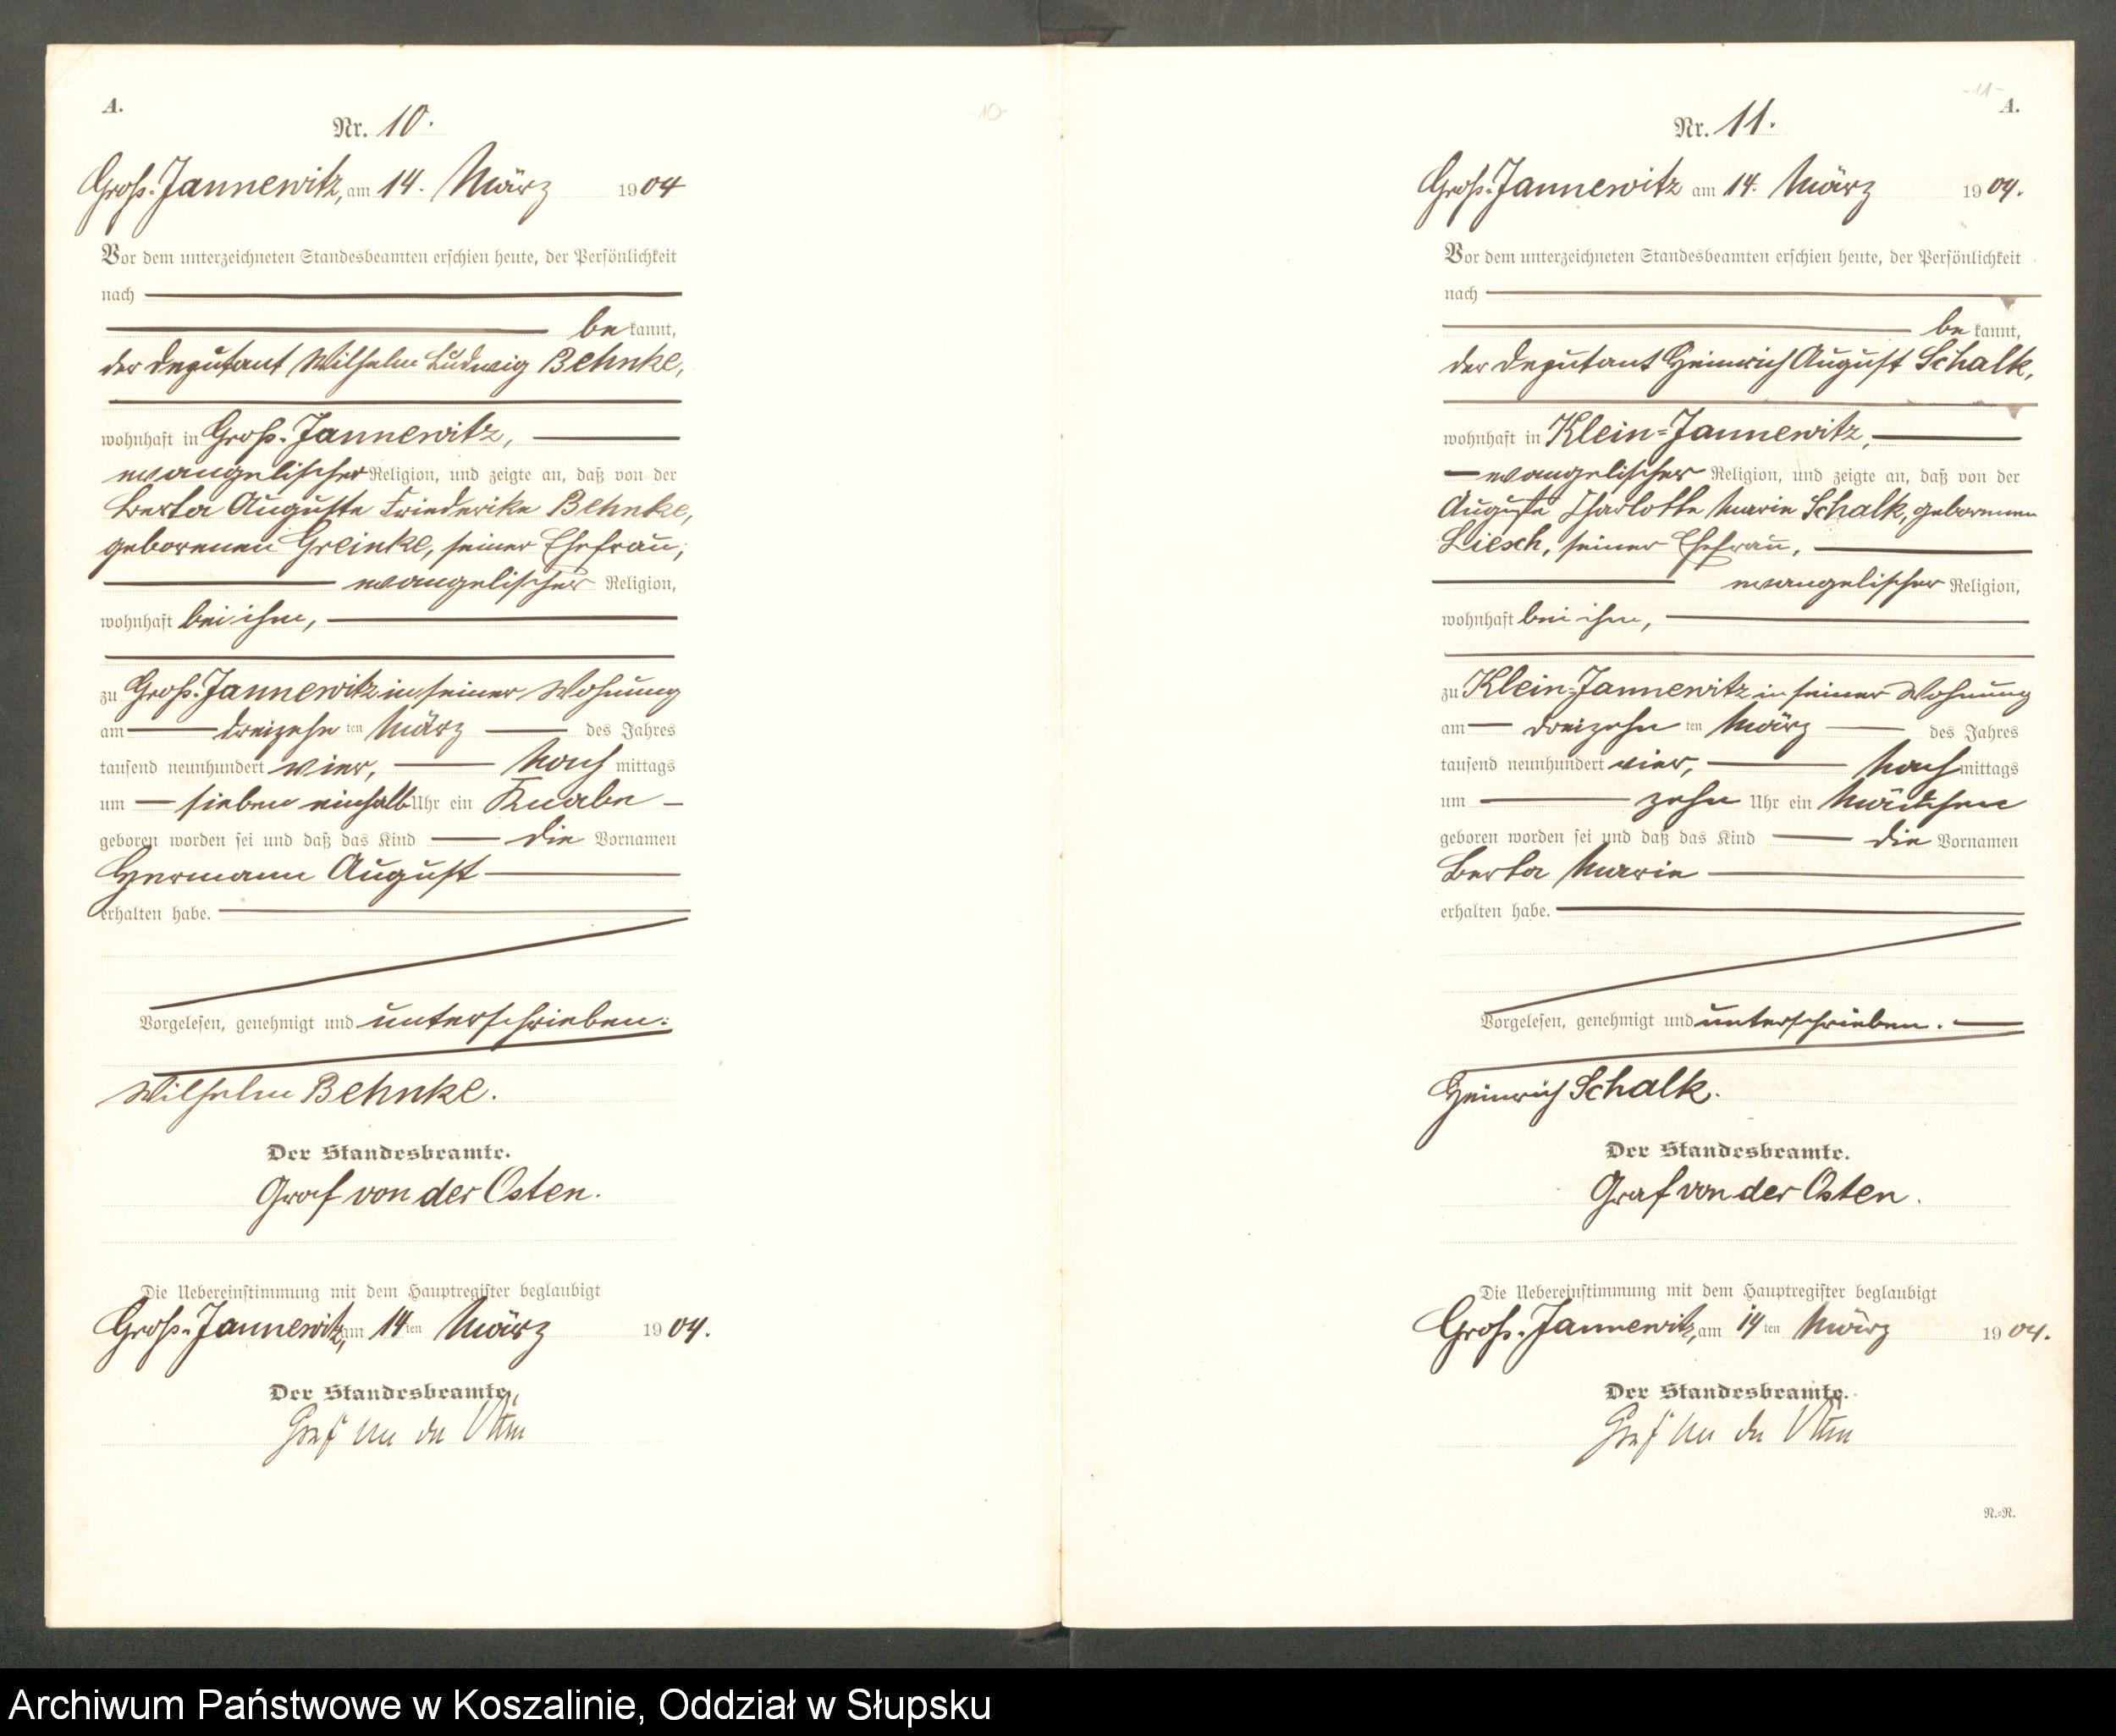 A.
Nr. 10.
Groß-Jannewitz, am 14. März 1904
Vor dem unterzeichneten Standesbeamten erschien heute, der Persönlichkeit
nach
be kannt,
der Deputant Wilhelm Ludwig Behnke,
wohnhaft in Groß-Jannewitz,
evangelischer Religion, und zeigte an, daß von der
Berta Auguste Friederike Behnke,
geborenen Greinke, seiner Ehefrau,
evangelischer Religion,
wohnhaft bei ihm,
zu Groß-Jannewitz in seiner Wohnung
am dreizehn ten März des Jahres
tausend neunhundert vier, Nach mittags
um sieben einhalb Uhr ein Knabe
geboren worden sei und daß das Kind die Vornamen
Hermann August
erhalten habe.
Vorgelesen, genehmigt und unterschrieben.
Wilhelm Behnke.
Der Standesbeamte.
Graf von der Osten.
Die Uebereinstimmung mit dem Hauptregister beglaubigt
Groß-Jannewitz, am 14ten März 1904.
Der Standesbeamte.
Graf von der Osten
-10-
-11-
A.
Nr. 11.
Groß-Jannewitz am 14. März 1904.
Vor dem unterzeichneten Standesbeamten erschien heute, der Persönlichkeit
nach
be kannt,
der Deputant Heinrich August Schalk,
wohnhaft in Klein-Jannewitz,
evangelischer Religion, und zeigte an, daß von der
Auguste Charlotte Marie Schalk, geborenen
Liesch, seiner Ehefrau,
evangelischer Religion,
wohnhaft bei ihm,
zu Klein-Jannewitz in seiner Wohnung
am dreizehn ten März des Jahres
tausend neunhundert vier, Nach mittags
um zehn Uhr ein Mädchen
geboren worden sei und daß das Kind die Vornamen
Berta Marie
erhalten habe.
Vorgelesen, genehmigt und unterschrieben.
Heinrich Schalk.
Der Standesbeamte.
Graf von der Osten.
Die Uebereinstimmung mit dem Hauptregister beglaubigt
Groß-Jannewitz, am 14ten März 1904.
Der Standesbeamte.
Graf von der Osten
N.-R.
Archiwum Państwowe w Koszalinie, Oddział w Słupsku